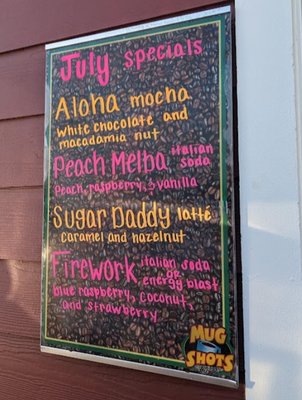 July Specials
Aloha mocha
White chocolate and
macadamia nut
Peach Melba italian
soda
Peach, raspberry, & vanilla
Sugar Daddy latté
caramel and hazelnut
Firework italian soda
or
energy blast
blue raspberry, coconut,
and strawberry
MUG
SHOTS